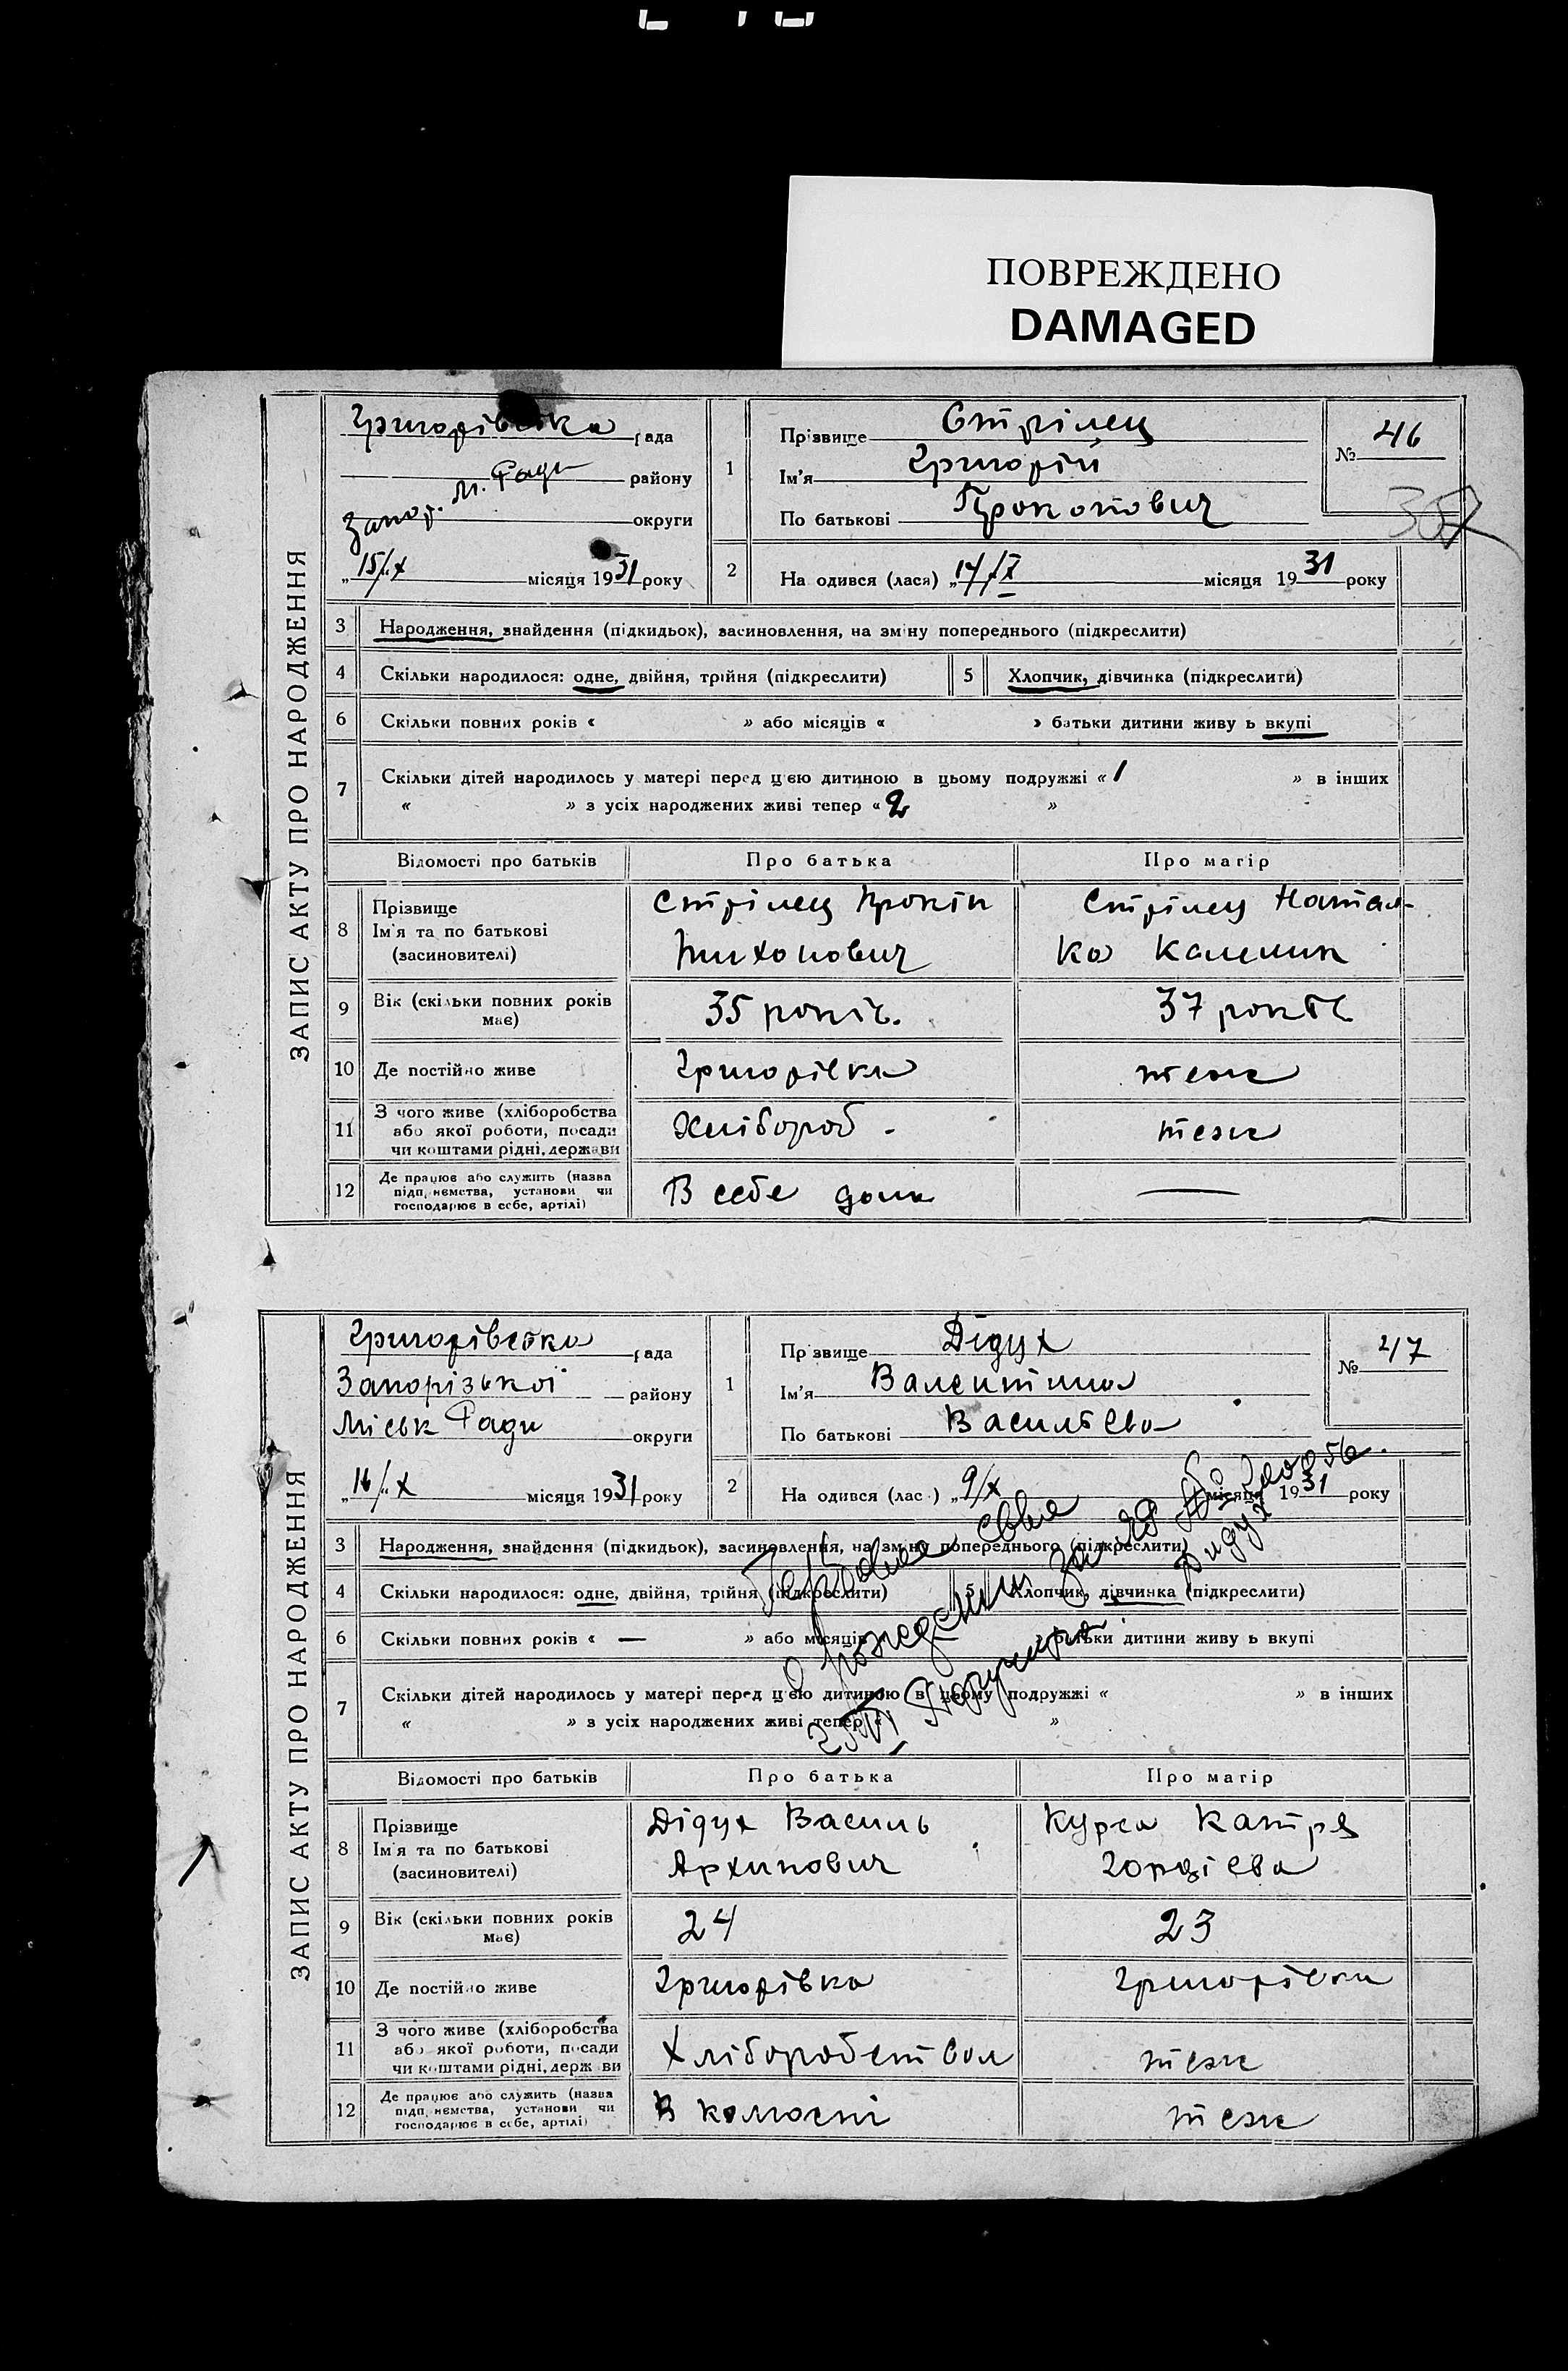 ПОВРЕЖДЕНО
DAMAGED
ЗАПИС АКТУ ПРО НАРОДЖЕННЯ
Григорівська рада
району
Запор. М. Ради
округи
„15/„X місяця 1931 року
1
Прізвище Стрілец
Ім'я Григорій
По батькові Прокопович
№ 46
357
2
На одився (лася) „14/X місяця 1931 року
3 Народження, знайдення (підкидьок), засиновлення, на зміну попереднього (підкреслити)
4 Скільки народилося: одне, двійня, трійня (підкреслити) 5 Хлопчик, дівчинка (підкреслити)
6 Скільки повних років « » або місяців « » батьки дитини живу ь вкупі
7 Скільки дітей народилось у матері перед цією дитиною в цьому подружжі «1 » в інших
« » з усіх народжених живі тепер «2 »
Відомості про батьків Про батька Про матір
8 Прізвище Ім'я та по батькові (засиновителі)
Стрілец Прокіп
Тихонович
Стрілец Натал-
ка Калиник
9 Вік (скільки повних років має) 35 років. 37 років
10 Де постійно живе Григорівка теж
11 З чого живе (хліборобства або якої роботи, посади чи коштами рідні, держави Хлібороб - теж
12 Де працює або служить (назва підп, немства, установи чи господарює в себе, артілі) В себе дома —
ЗАПИС АКТУ ПРО НАРОДЖЕННЯ
Григорівська рада
Запорізької району
Міськ Ради округи
„16/„X місяця 1931 року
1
Прізвище Дідух
Ім'я Валентина
По батькові Васильєва
№ 47
2
На одився (лас ) „9/X місяця 1931 року
3 Народження, знайдення (підкидьок), засиновлення, на зміну попереднього (підкреслити)
4 Скільки народилося: одне, двійня, трійня (підкреслити) 5 Хлопчик, дівчинка (підкреслити)
6 Скільки повних років « — » або місяців « » батьки дитини живу ь вкупі
7 Скільки дітей народилось у матері перед цією дитиною в цьому подружжі « » в інших
« » з усіх народжених живі тепер « »
о рождении за №
Дидух
Відомості про батьків Про батька Про матір
8 Прізвище Ім'я та по батькові (засиновителі)
Дідух Василь
Архипович
Курса Катря
Гордієва
9 Вік (скільки повних років має) 24 23
10 Де постійно живе Григорівка Григорівка
11 З чого живе (хліборобства або якої роботи, посади чи коштами рідні, держ ви Хліборобством теж
12 Де працює або служить (назва підп, немства, установи чи господарює в себе, артілі) В комосні теж